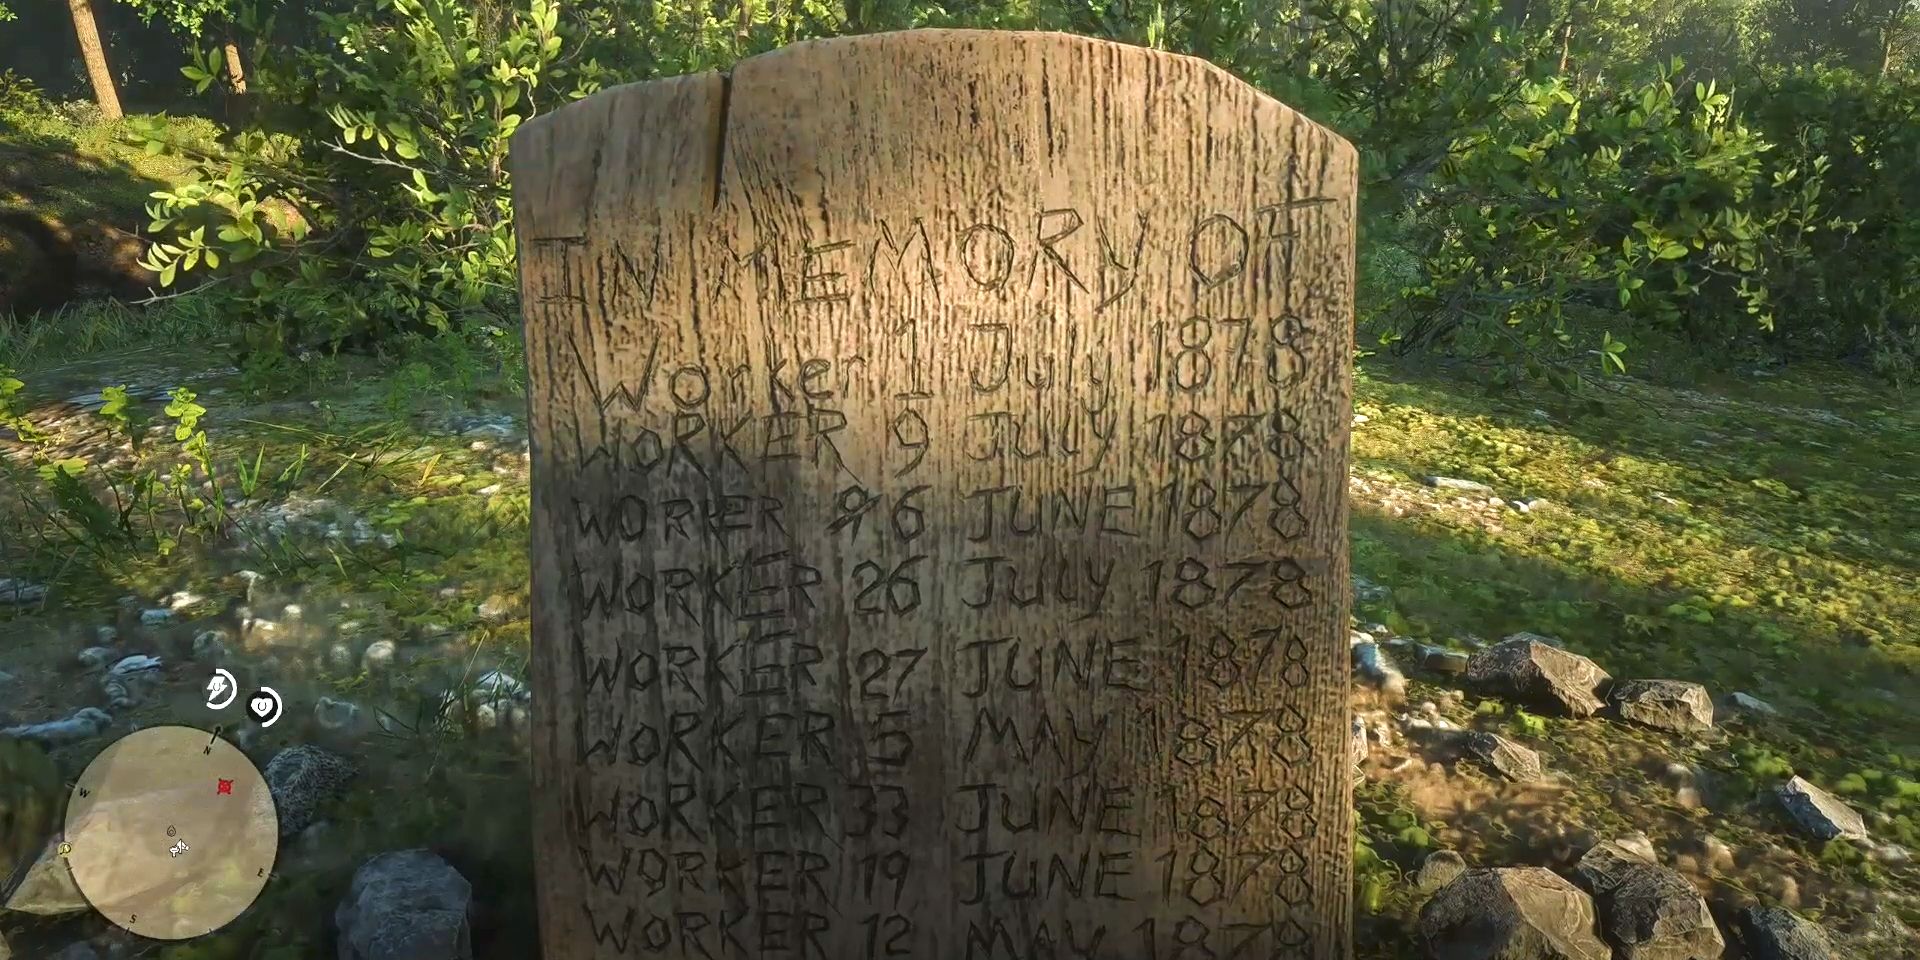 IN MEMORY OF
Worker 1 July 1878
WORKER 9 July 1878
WORKER 96 JUNE 1878
WORKER 26 July 1878
WORKER 27 JUNE 1878
WORKER 5 MAY 1878
WORKER 33 JUNE 1878
WORKER 19 JUNE 1878
WORKER 12 MAY 1878
N
W
E
S